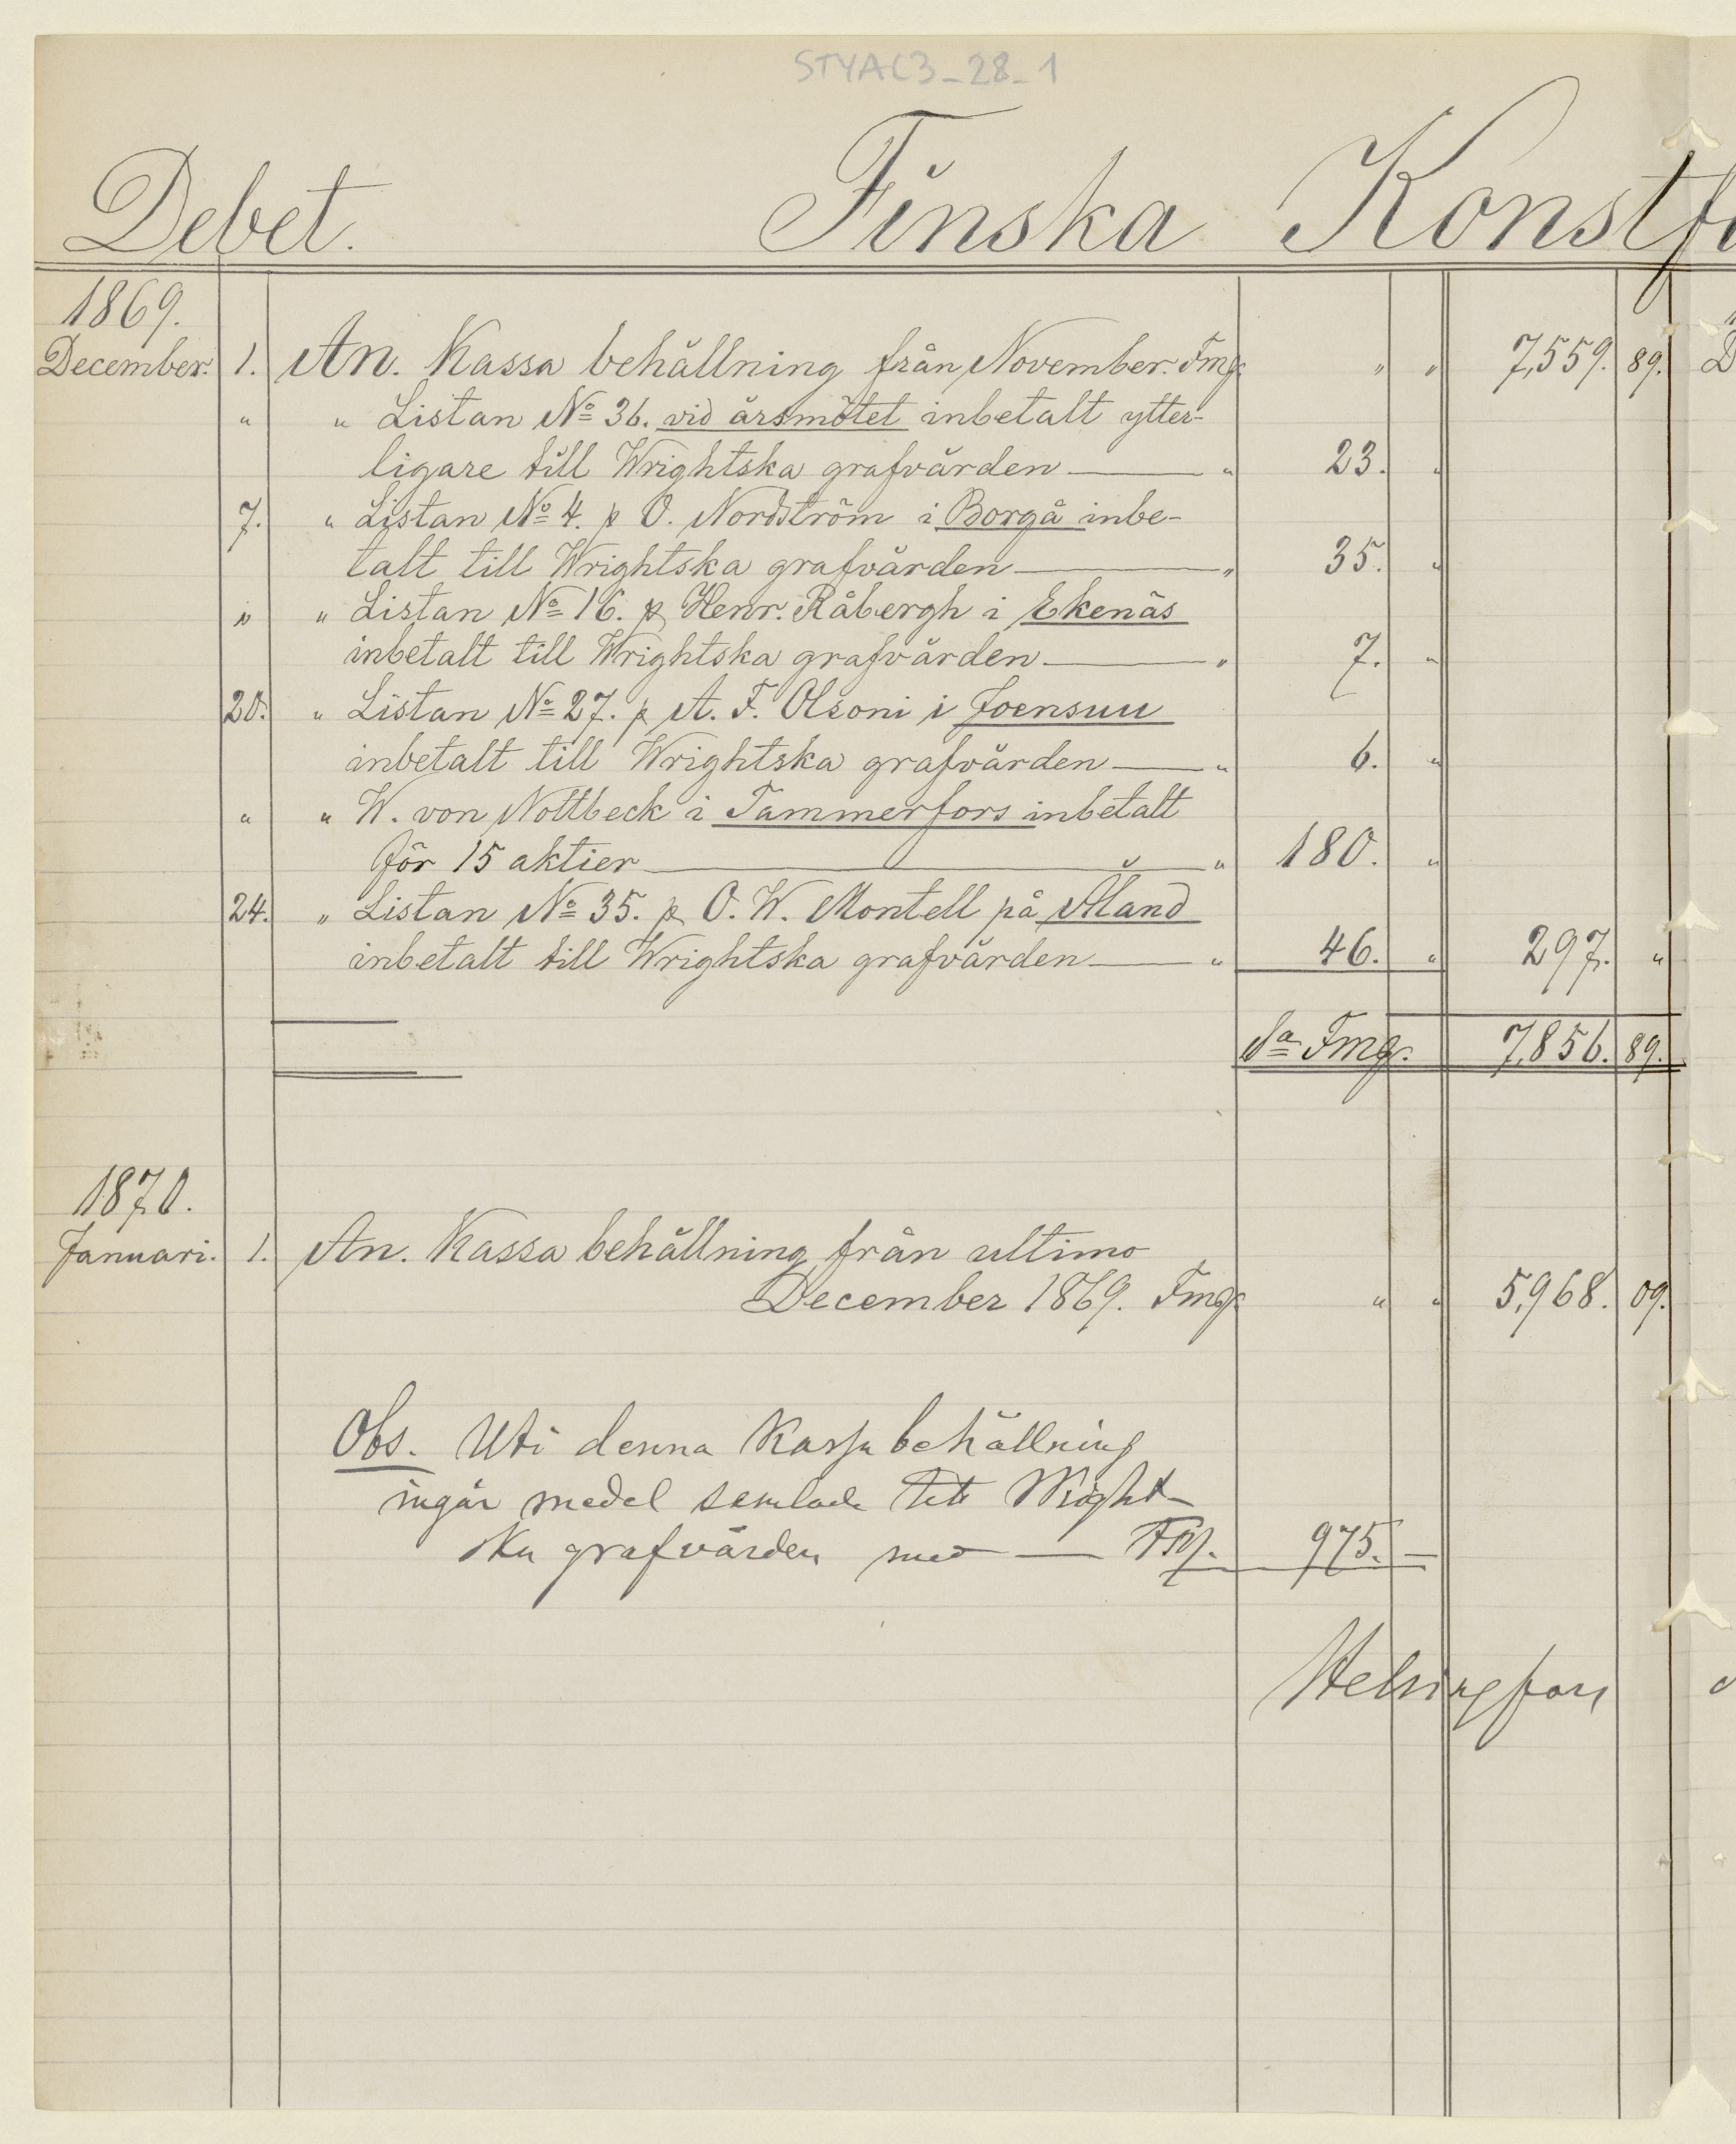 STYAC3_28_1
Debet. Finska Konstfö
1869.
December. 1. An. Kassa behållning från November. Fmg. " " 7,559. 89.
" " Listan No 36. vid årsmötet inbetalt ytter-
ligare till Wrightska grafvården " 23. "
7. " Listan No 4. p O. Nordström i Borgå inbe-
talt till Wrightska grafvården " 35. "
" " Listan No 16. p Henr. Råbergh i Ekenäs
inbetalt till Wrightska grafvården " 7. "
20. " Listan No 27. p A. F. Olsoni i Joensuu
inbetalt till Wrightska grafvården " 6. "
" " W. von Nottbeck i Tammerfors inbetalt
för 15 aktier " 180. "
24. " Listan No 35. p O. W. Montell på Åland
inbetalt till Wrightska grafvården " 46. " 297. "
Sa Fmg. 7,856. 89.
1870.
Januari. 1. An. Kassa behållning från ultimo
December 1869. Fmg. " " 5,968. 09.
Obs. Uti denna Kassabehållning
ingår medel samlade till Wright-
ska grafvården med — Fmg. 975. —
Helsingfors